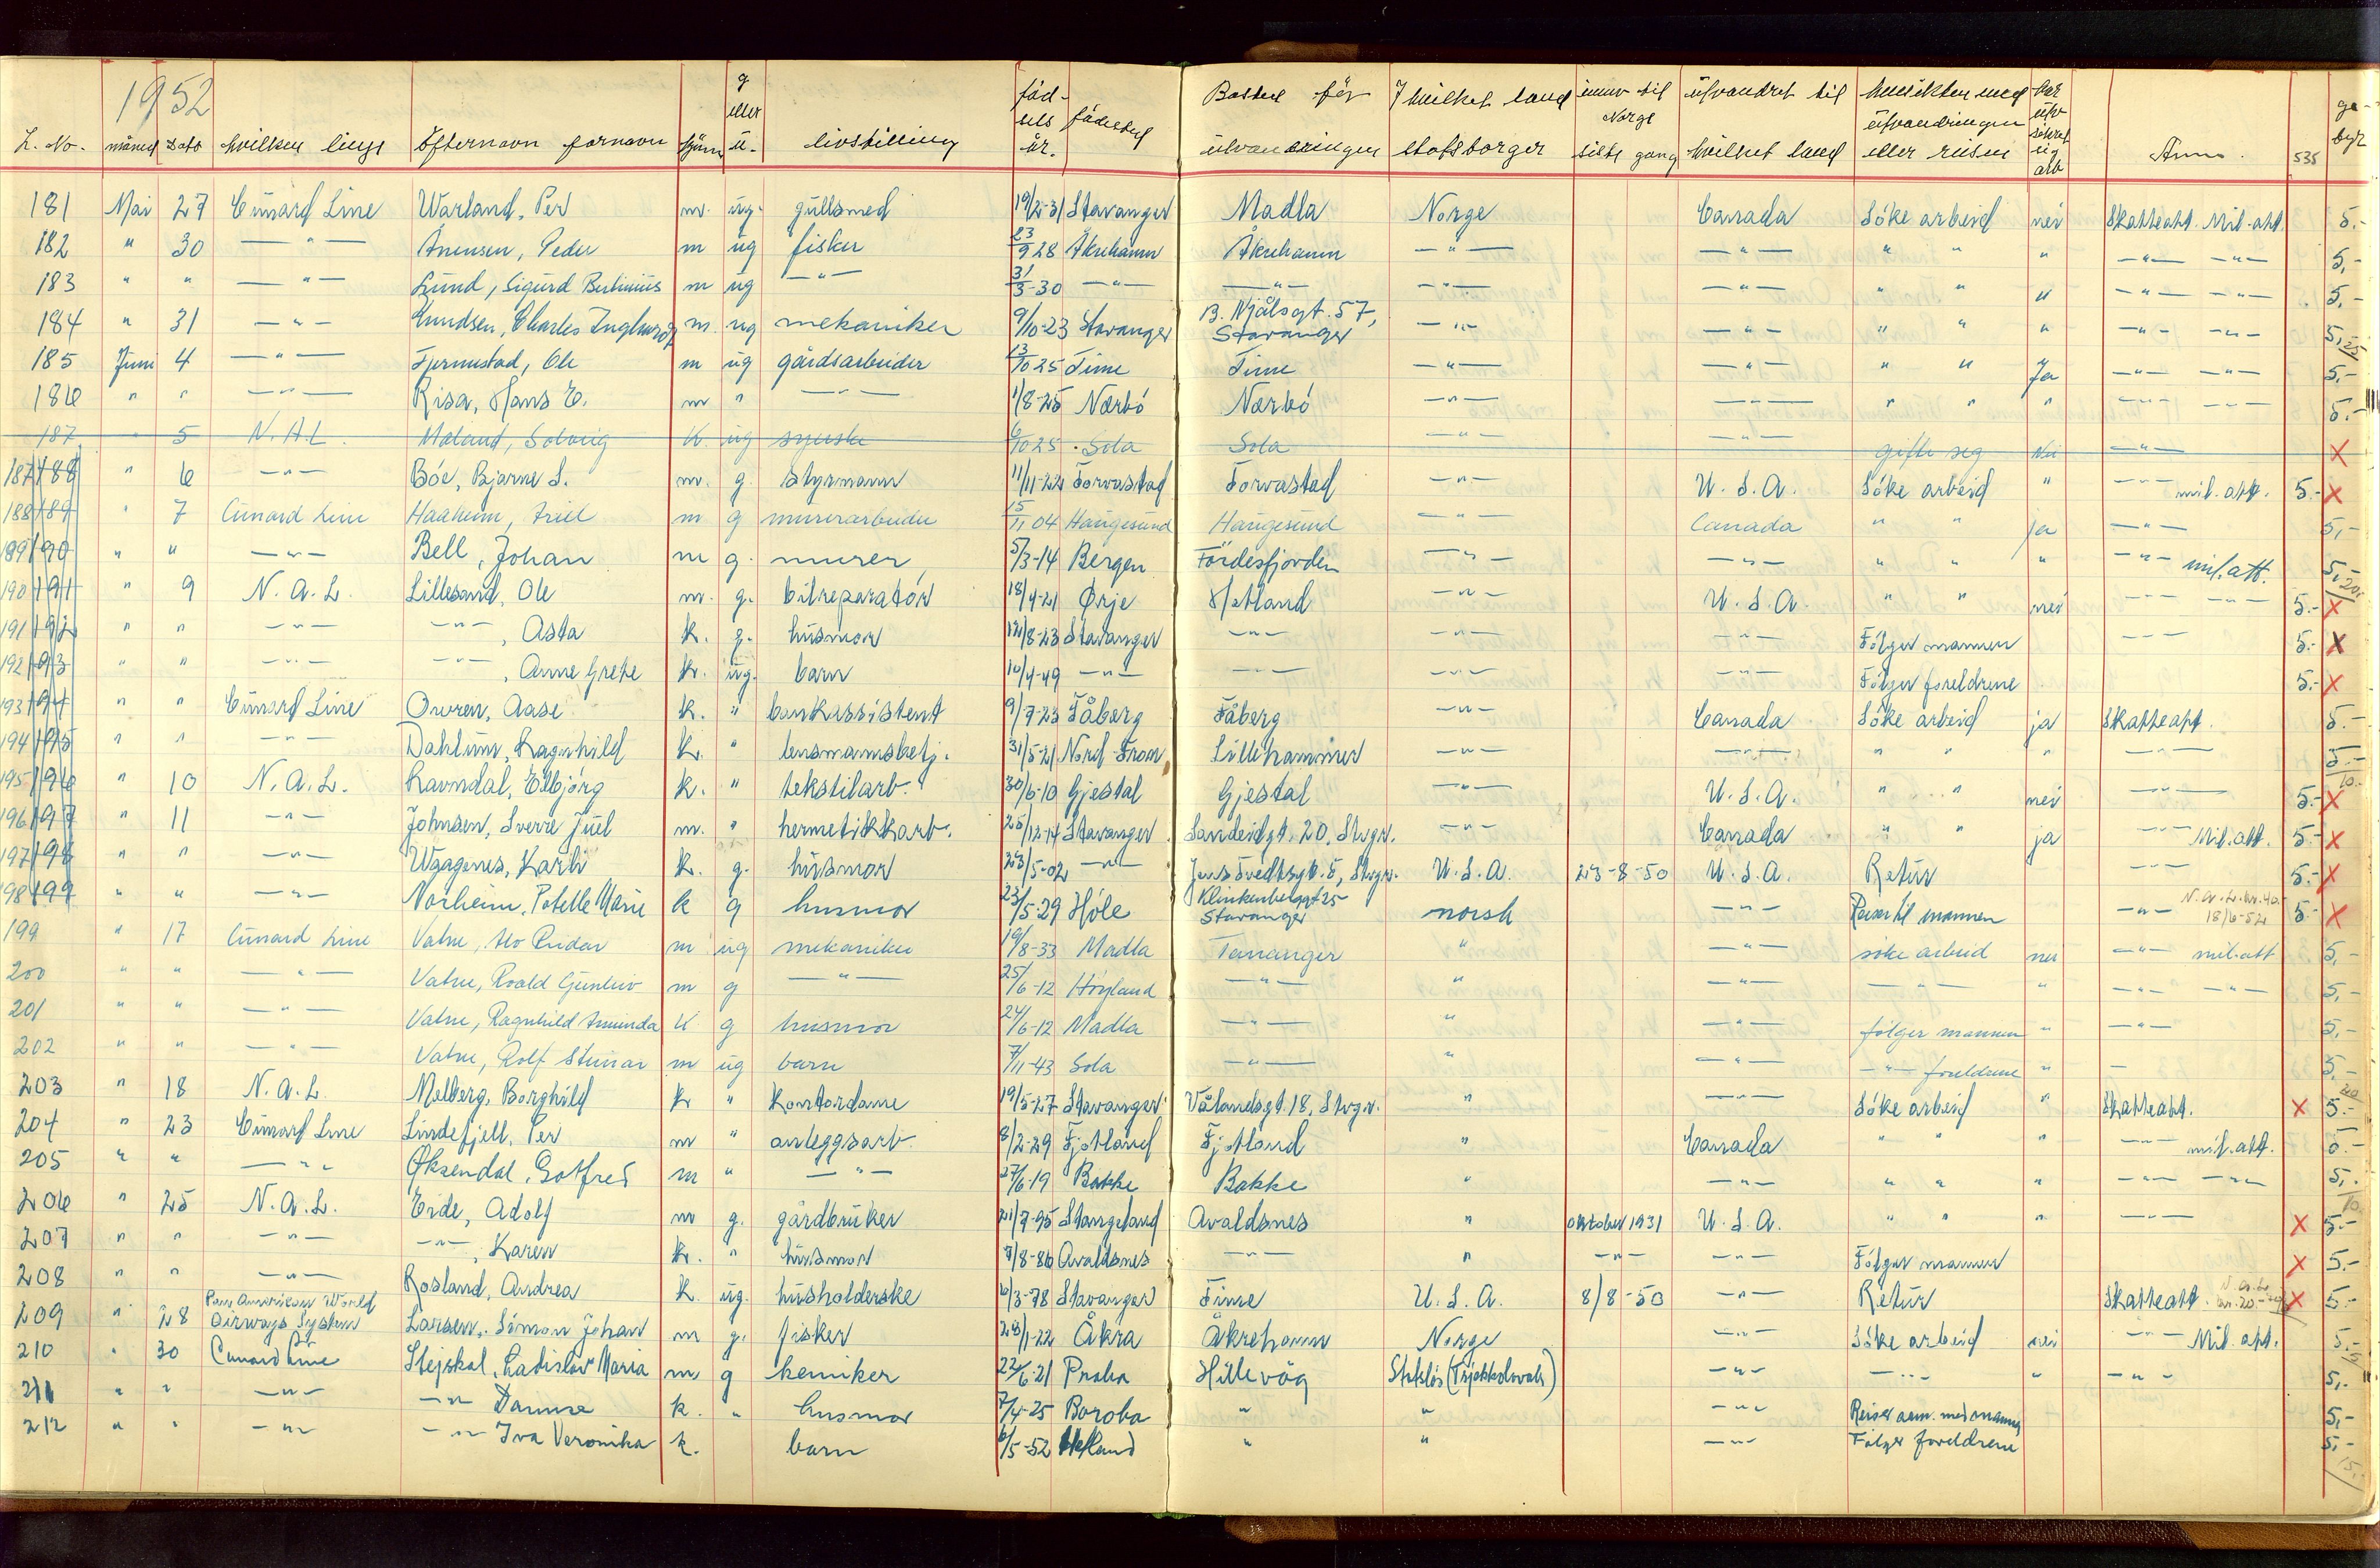 1952
L. No. måned Dato hvilken linje Efternavn fornavn kjønn g eller u. livstilling fødsels år. fødested Bosted før utvandringen I hvilket land statsborger innv til Norge siste gang utvandret til hvilket land hensikten med utvandringen eller reisen har utv sikret sig arb Anm. 535 gebyr
181 Mai 27 Cunard Line Warland, Per m. ug. gullsmed 19/2-31 Stavanger Madla Norge Canada Söke arbeid nei Skatteatt. Mil. att. 5.-
182 " 30 —"— Ånensen, Peder m ug fisker 23/9 28 Åkrehamn Åkrehamn —"— —"— " " " —"— —"— 5,-
183 " " —"— Lund, Sigurd Bertinius m ug —"— 31/3-30 —"— —"— —"— —"— " " " —"— —"— 5,-
184 " 31 —"— Knudsen, Charles Ingburg m. ug mekaniker 9/10-23 Stavanger B. Njålsgt. 57, Stavanger —"— —"— " " " —"— —"— 5,- 25
185 Juni 4 —"— Fjermestad, Ole m ug gårdsarbeider 13/10 25 Time Time —"— —"— " " Ja —"— —"— 5,-
186 " " —"— Risa, Hans E. m " —"— 1/8-25 Nærbö Nærbö —"— —"— " " " —"— —"— 5.-
187 " 5 N.A.L. Møland, Solveig K. ug syerske 6/10 25 Sola Sola —"— —"— gifte seg Nei —"— X
187 188 " 6 —"— Böe, Bjarne S. m. g. Styrmann 11/11-22 Torvastad Torvastad —"— U.S.A. Söke arbeid " —"— mil. att. 5.- X
188 189 " 7 Cunard Line Haaheim, m g murerarbeider 15/11 04 Haugesund Haugesund —"— Canada " " ja —"— 5,-
189 190 " " —"— Bell, Johan m g. murer 5/3-14 Bergen Fördesfjorden —"— —"— " " " —"— mil. att. 5,- 20.-
190 191 " 9 N.A.L. Lillesand, Ole m. g. bilreparatör 18/4-21 Ørje Hetland —"— U.S.A. " " nei —"— —"— 5.- X
191 192 " " —"— —"—, Asta k. g. husmor 12/8-23 Stavanger —"— —"— —"— Fölger mannen —"— 5.- X
192 193 " " —"— —"—, Anne Grete k. ug. barn 10/4-49 —"— —"— —"— —"— Fölger foreldrene 5.- X
193 194 " " Cunard Line Owren, Aase k. " bankassistent 9/7-23 Fåberg Fåberg —"— Canada Söke arbeid ja Skatteatt. 5.-
194 195 " " —"— Dahlum, Ragnhild k. " lensmannsbetj. 31/5-21 Nord-Fron Lillehammer —"— —"— " " " —"— 5.- 10.-
195 196 " 10 N.A.L. Ravndal, Elbjörg k. " tekstilarb. 30/6-10 Gjestal Gjestal —"— U.S.A. " " nei —"— 5.- X
196 197 " 11 —"— Johnsen, Sverre Juel m. " hermetikkarb. 25/12-14 Stavanger Sandeidgt. 20, Stvgr. —"— Canada " " ja —"— Mil. att. 5.- X
197 198 " " —"— Karli k. g. husmor 23/5-02 —"— Jens Tvedtsgt. 5, Stvgr. U.S.A. 23-8-50 U.S.A. Retur —"— 5.- X
198 199 " " —"— Norheim, Marie k g husmor 23/5-29 Höle Klinkenberggt 25 Stavanger norsk —"— Reiser til mannen —"— N.A.L. nr. 40. 18/6-52 5.- X
199 " 17 Cunard Line Vatne, m ug mekaniker 19/8-33 Madla Tananger " —"— söke arbeid nei —"— mil. att 5,-
200 " " —"— Vatne, Roald Gunleiv m g —"— 25/6-12 Höyland —"— " —"— —"— " —"— —"— 5,-
201 " " —"— Vatne, Ragnhild Amunda K g husmor 24/6-12 Madla —"— " —"— fölger mannen " —"— 5,-
202 " " —"— Vatne, Rolf Steinar m ug barn 7/11-43 Sola —"— " —"— —"— foreldrene " — 5,- 20
203 " 18 N.A.L. Melberg, Borghild k " Kontordame 19/5-27 Stavanger Vålandsgt. 18, Stvgr. " —"— Söke arbeid " Skatteatt. X 5.-
204 " 23 Cunard Line Lindefjell, Per m " anleggsarb. 8/2-29 Fjotland Fjotland " Canada " " " —"— mil. att. 5.-
205 " " —"— Øksendal, Gotfred m " —"— 27/6-19 Bakke Bakke " —"— " " " —"— —"— 5,- 10
206 " 25 N.A.L. Eide, Adolf m g. gårdbruker 21/7-95 Stangeland Avaldsnes " Oktober 1931 U.S.A. " " " —"— X 5.-
207 " " —"— —"—, Karen k. " husmor 7/8-86 Avaldsnes —"— " —"— —"— Fölger mannen X 5.-
208 " " —"— Rosland, Andrea k. ug. husholderske 6/3-78 Stavanger Time U.S.A. 8/8-50 —"— Retur Skatteatt. X 5.-
209 " 28 Pan American World Airways System Larsen, Simon Johan m g. fisker 28/1-22 Åkra Åkrehamn Norge —"— Söke arbeid nei —"— Mil. att. 5.-
210 " 30 Cunard Line Stejskal, Ladislav Maria m g kemiker 22/6-21 Praha Hillevåg Statslös (Tsjekkoslovak) —"— —"— " —"— 5,-
211 " " —"— —"— k. " husmor 7/4-25 " " —"— Reiser sam. med mannen 5,-
212 " " —"— —"— Iva Veronika k. barn 6/5-52 Hetland " " —"— Fölger foreldrene 5,- 15.-